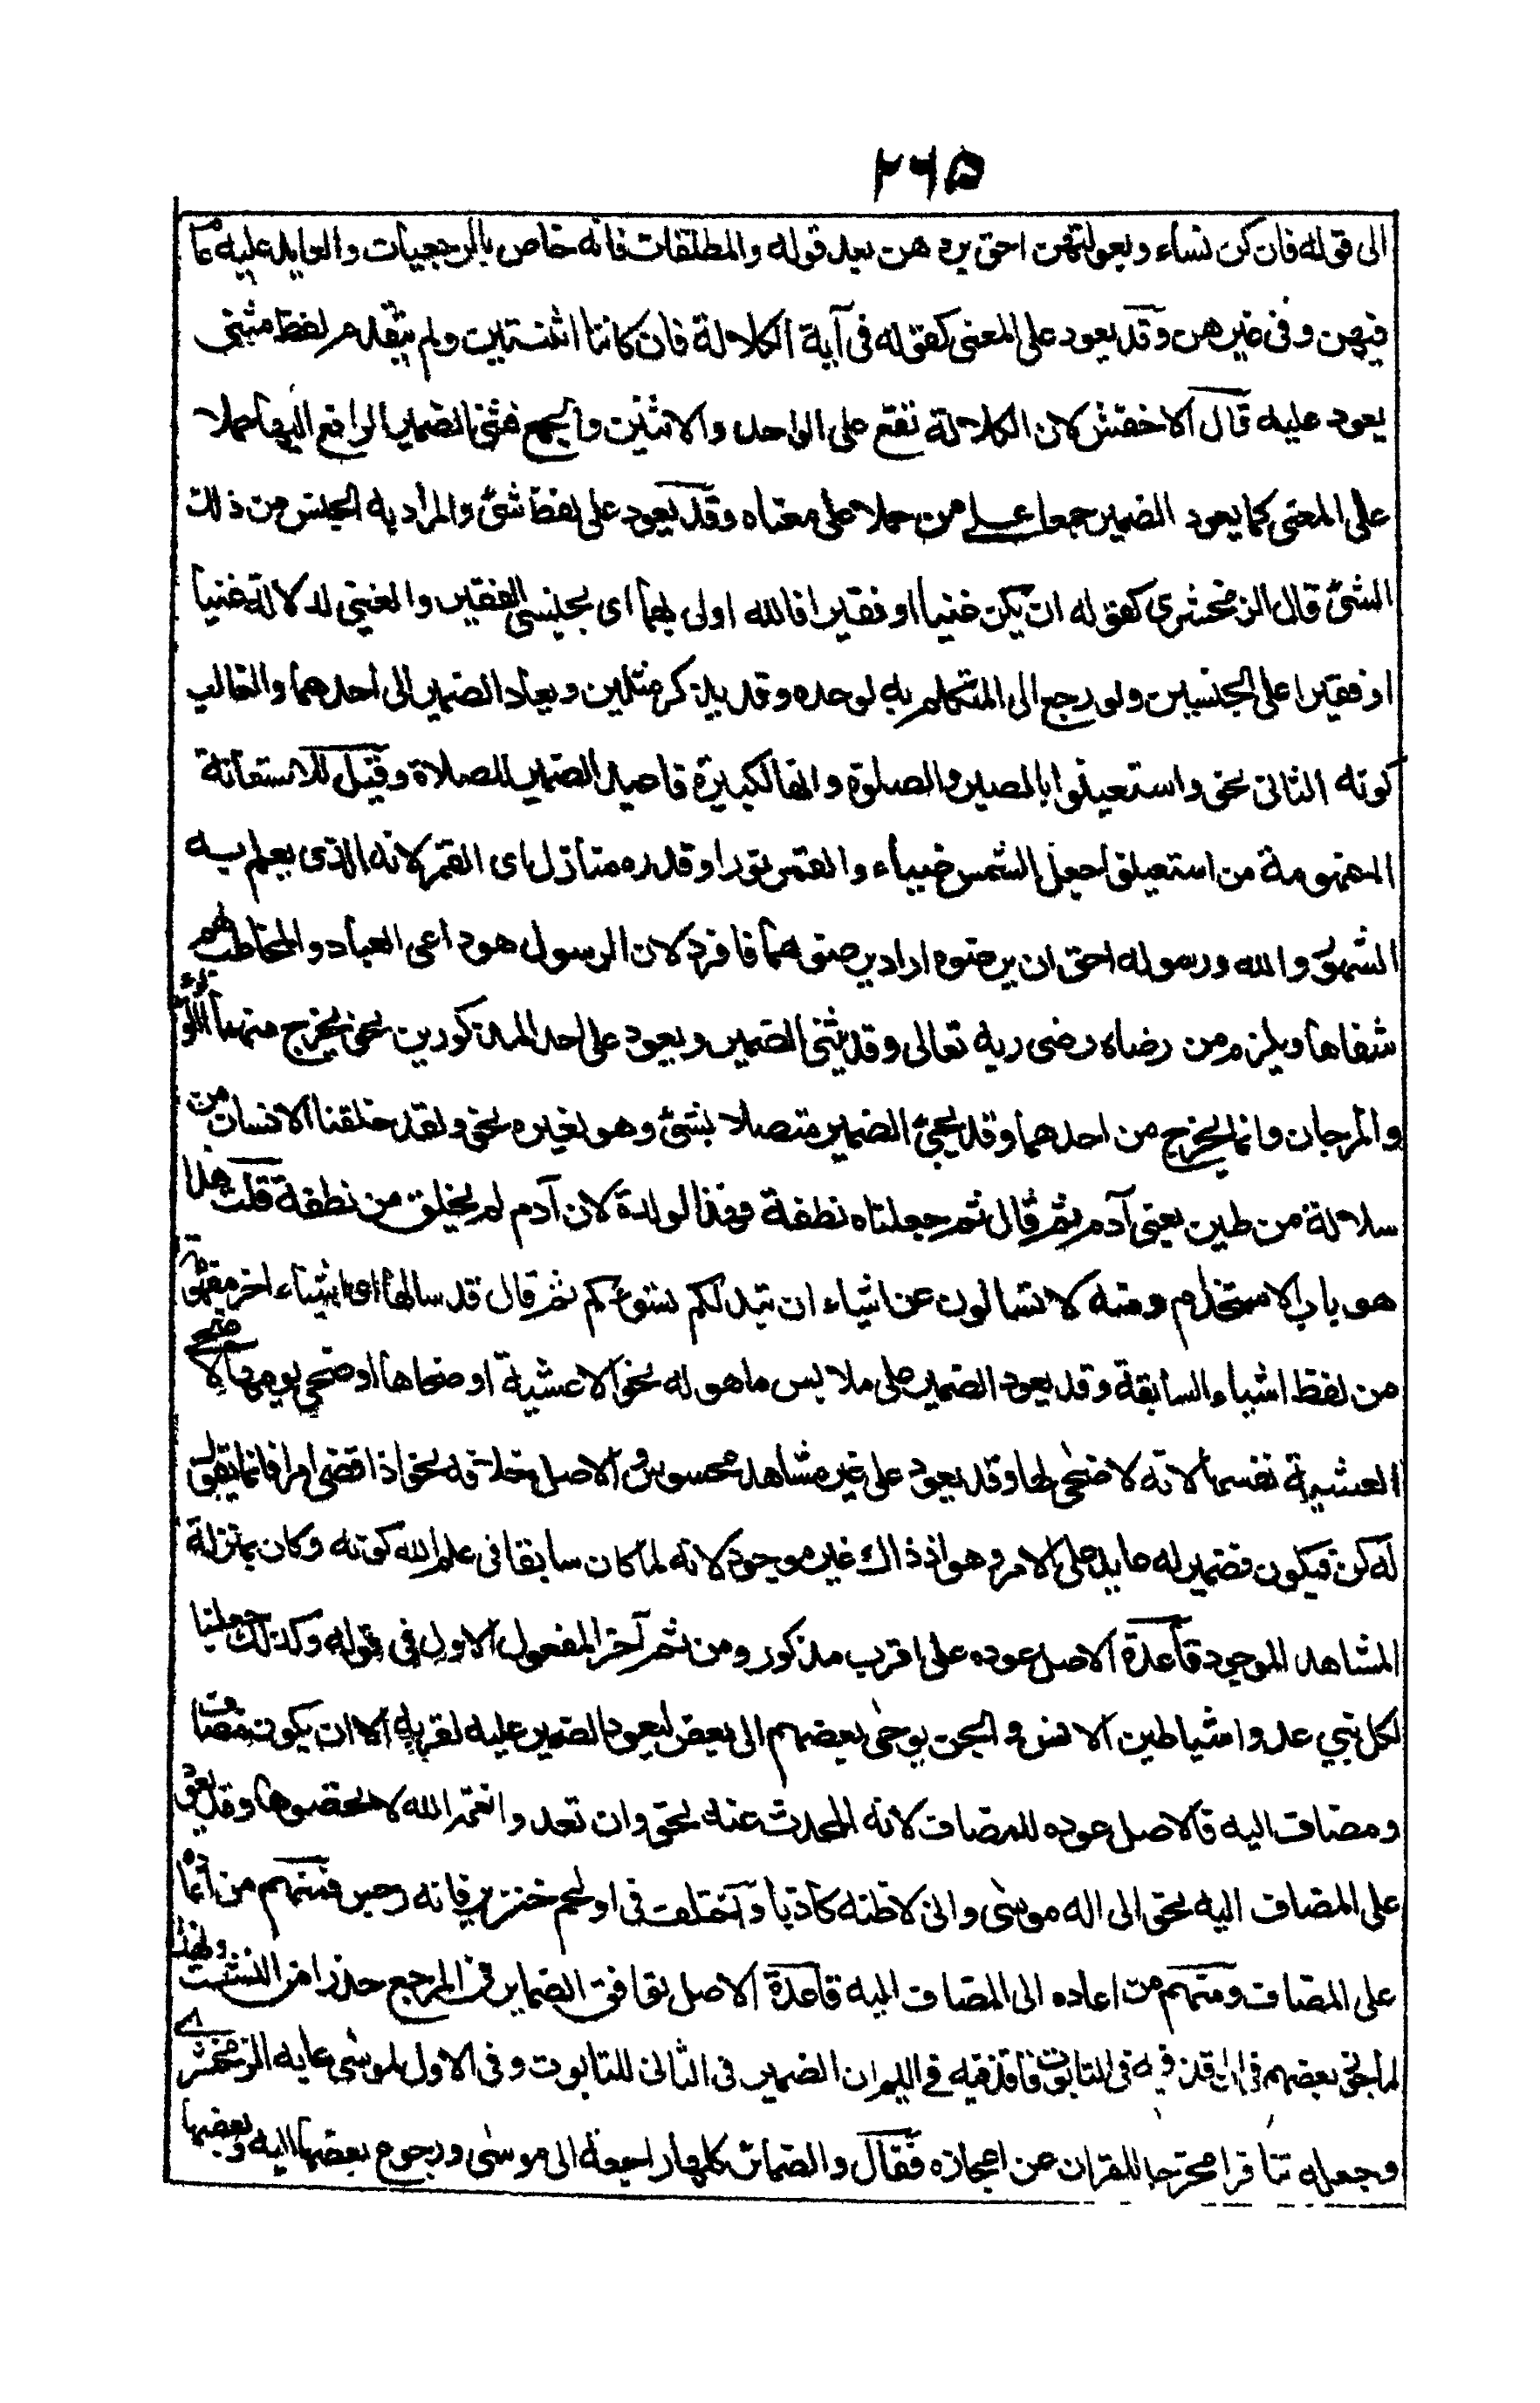 ٢٦٥
الى قوله فان كن نساء وبعولتهن احق بردهن بعد قوله والمطلقات فانه خاص بالرجعيات والعايد عليه عام
فيهن وفى غيرهن وقد يعود على المعنى كقوله فى آية الكلالة فان كانتا اثنتين ولم يتقدم لفظ مثنى
يعود عليه قال الاخفش لان الكلالة تقع على الواحد والاثنين والجمع فثنى الضمير الراجع اليها حملا
على المعنى كما يعود الضمير جمعا على من حملا على معناه وقد يعود على لفظ شئ والمراد به الجنس من ذلك
الشئ قال الزمخشرى كقوله ان يكن غنيا او فقيرا فالله اولى بهما اى بجنسى الفقير والغنى لدلالة غنيا
او فقيرا على الجنسين ولو رجع الى المتكلم به لوحده وقد يذكر شيئين ويعاد الضمير الى احدهما والغالب
كونه الثانى نحو واستعينوا بالصبر والصلوة وانها لكبيرة فاعيد الضمير للصلاة وقيل للاستعانة
المفهومة من استعينوا جعل الشمس ضياء والقمر نورا وقدره منازل اى القمر لانه الذى يعلم به
الشهور والله ورسوله احق ان يرضوه اراد يرضوهما فافرد لان الرسول هو داعى العباد والمخاطب لهم
شفاها ويلزم من رضاه رضى ربه تعالى وقد يثنى الضمير ويعود على احد المذكورين نحو يخرج منهما اللؤلؤ
والمرجان وانما يخرج من احدهما وقد يجئ الضمير متصلا بشئ وهو لغيره نحو ولقد خلقنا الانسان من
سلالة من طين يعنى آدم ثم قال ثم جعلناه نطفة فهذا لولده لان آدم لم يخلق من نطفة قلت هذا
هو باب الاستخدام ومنه لا تسالوا عن اشياء ان تبد لكم تسوكم ثم قال قد سالها اى اشياء اخر مفهومة
من لفظ اشياء السابقة وقد يعود الضمير على ملابس ما هو له نحو الا عشية او ضحاها اى ضحى يومها لا ضحى
العشية نفسها لانه لا ضحى لها وقد يعود على غير مشاهد محسوس والاصل خلافه نحو اذا قضى امرا فانما يقول
له كن فيكون فضمير له عايد على الامر وهو اذ ذاك غير موجود لانه لما كان سابقا فى علم الله كونه وكان بمنزلة
المشاهد الموجود قاعدة الاصل عوده على اقرب مذكور ومن ثم آخر المفعول الاول فى قوله وكذلك جعلنا
لكل نبي عدوا شياطين الانس والجن يوحى بعضهم الى بعض ليعود الضمير عليه لقربه الا ان يكون مضافا
ومضاف اليه فالاصل عوده للمضاف لانه المحدث عنه نحو وان تعدوا نعمة الله لا تحصوها وقد يعود
على المضاف اليه نحو الى اله موسى وانى لاظنه كاذبا واختلف فى او لحم خنزير فانه رجس فمنهم من اعاده
على المضاف ومنهم من اعاده الى المضاف اليه قاعدة الاصل توافق الضماير فى المرجع حذرا من التشتت ولهذا
لما جوز بعضهم فى ان اقذفيه فى التابوت فاقذفيه فى اليم ان الضمير فى الثانى للتابوت وفى الاول لموسى عابه الزمخشرى
وجعله تنافرا مخرجا للقران عن اعجازه فقال والضمائر كلها راجعة الى موسى ورجوع بعضها اليه وبعضها